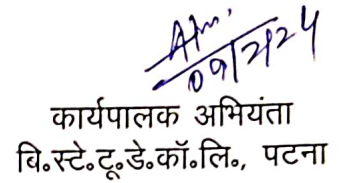 09/2/24
कार्यपालक अभियंता
बि॰स्टे॰टू॰डे॰कॉ॰लि॰, पटना